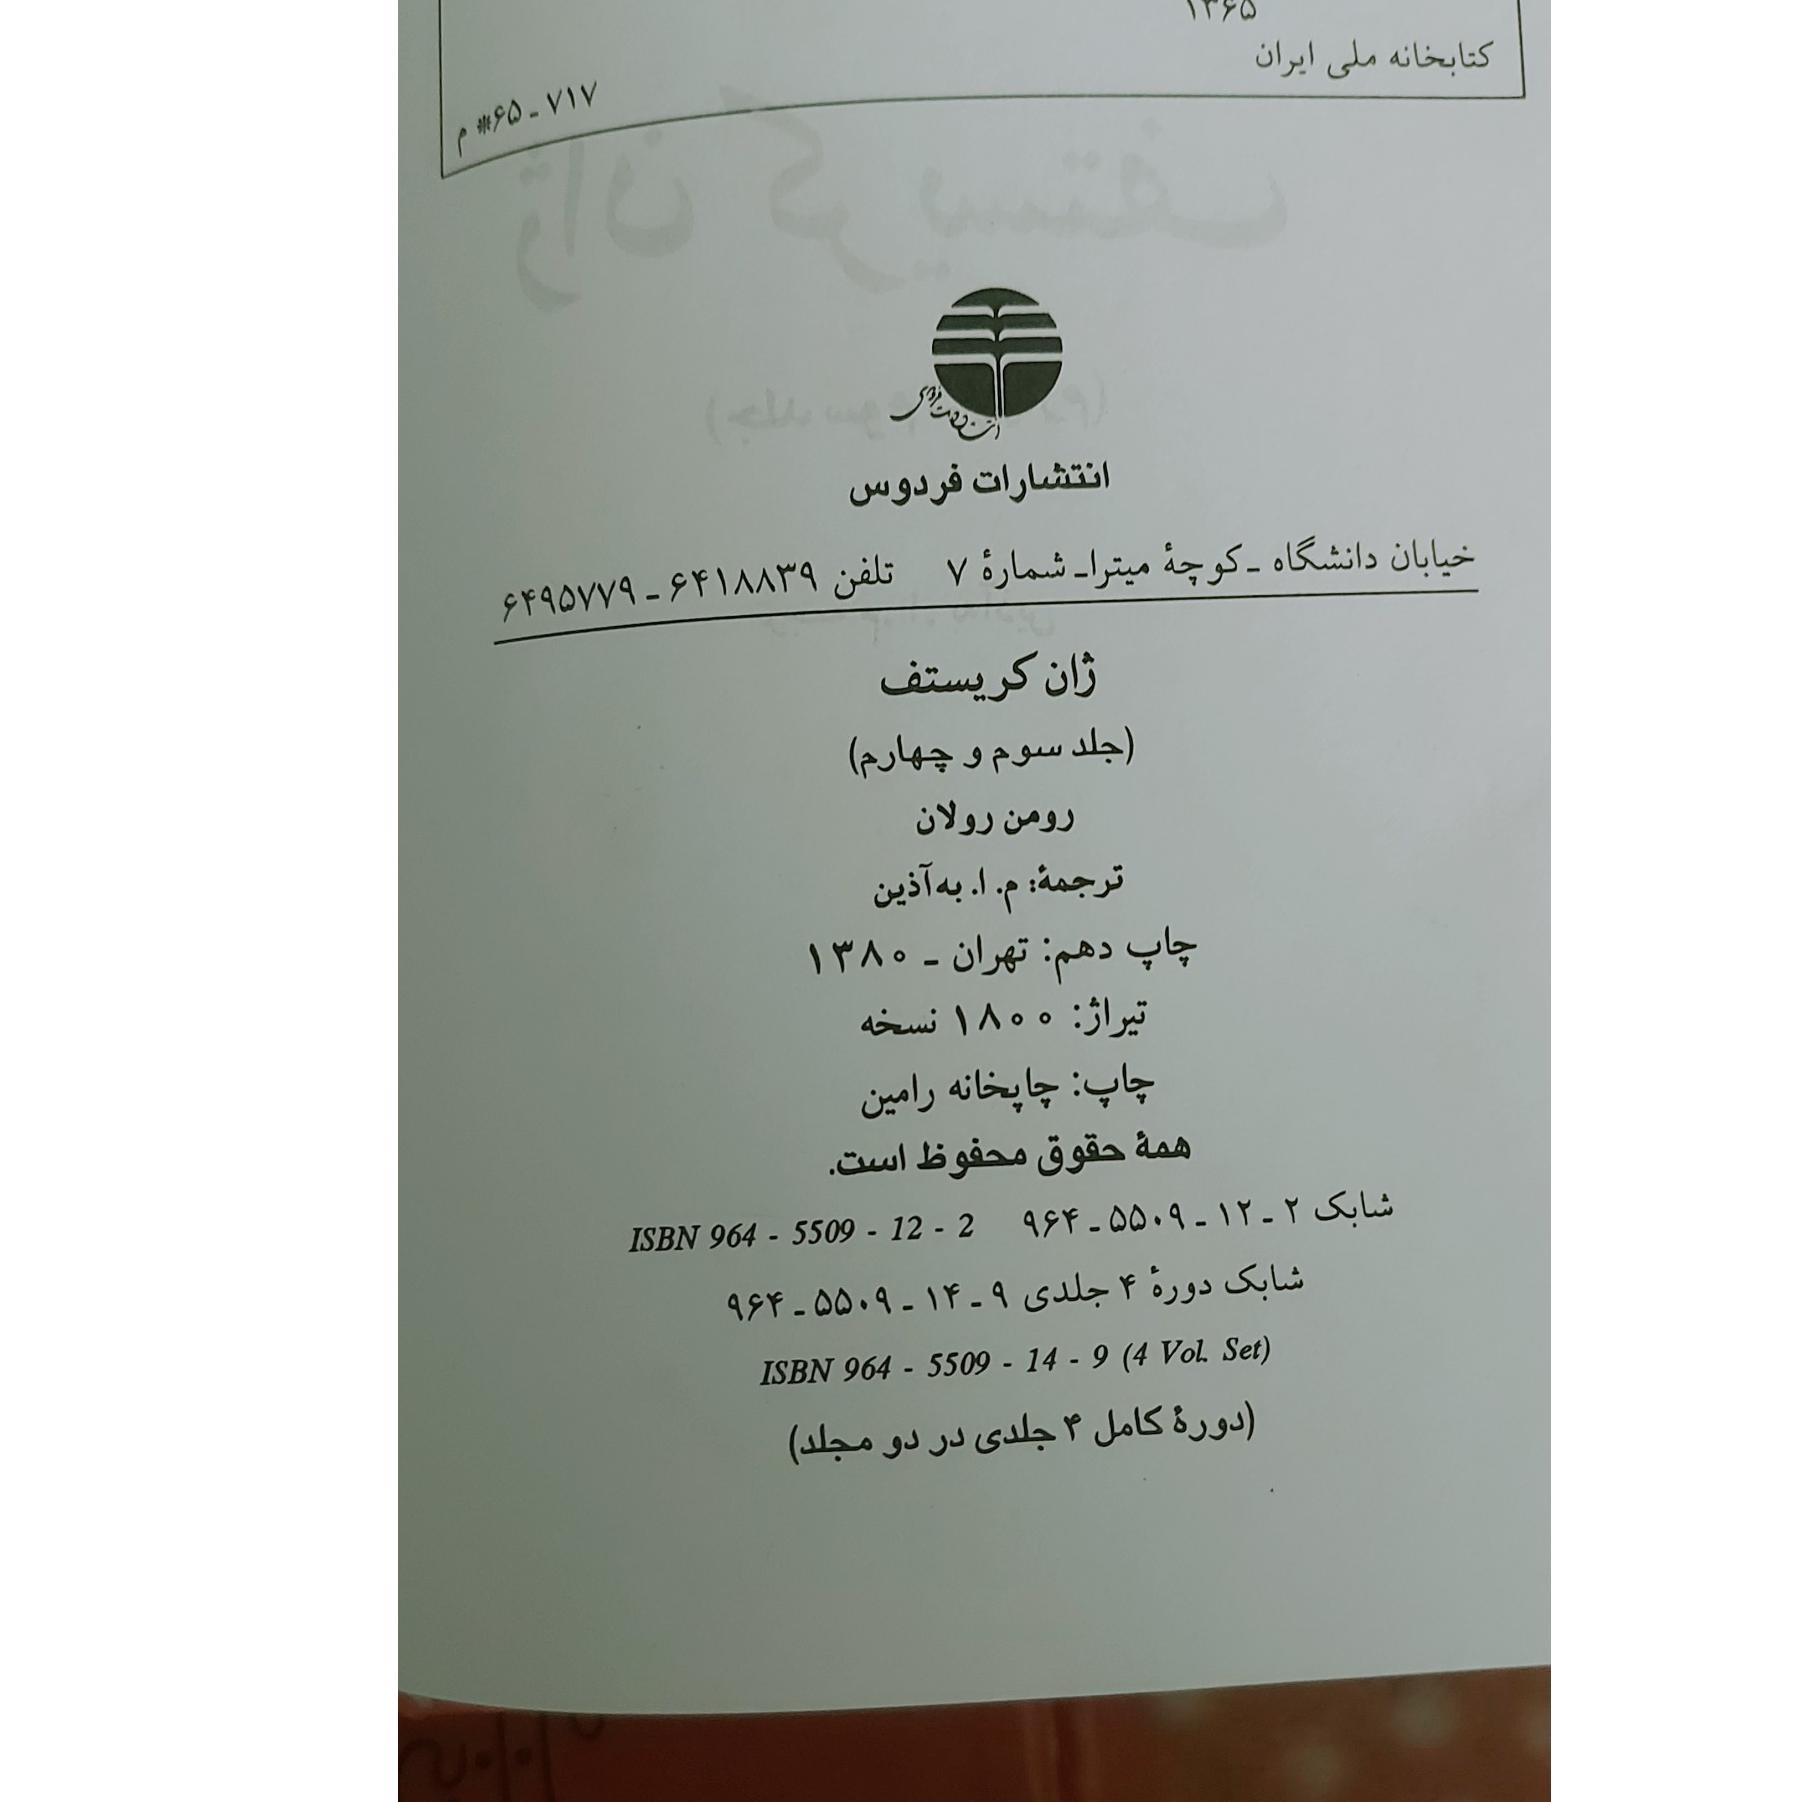 ۱۳۶۵
کتابخانه ملی ایران
۷۱۷ ـ ۶۵* م
انتشارات فردوس
خیابان دانشگاه ـ کوچهٔ میترا ـ شمارهٔ ۷ تلفن ۶۴۱۸۸۳۹ ـ ۶۴۹۵۷۷۹
ژان کریستف
(جلد سوم و چهارم)
رومن رولان
ترجمهٔ: م. ا. به‌آذین
چاپ دهم: تهران ـ ۱۳۸۰
تیراژ: ۱۸۰۰ نسخه
چاپ: چاپخانه رامین
همهٔ حقوق محفوظ است.
شابک ۲ ـ ۱۲ ـ ۵۵۰۹ ـ ۹۶۴ ISBN 964 - 5509 - 12 - 2
شابک دورهٔ ۴ جلدی ۹ ـ ۱۴ ـ ۵۵۰۹ ـ ۹۶۴
ISBN 964 - 5509 - 14 - 9 (4 Vol. Set)
(دورهٔ کامل ۴ جلدی در دو مجلد)